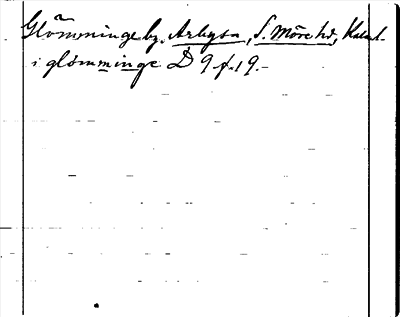 Glömminge by, Arbysn, S. Möre hd, Kalml.
i glömminge D 9:1:19.